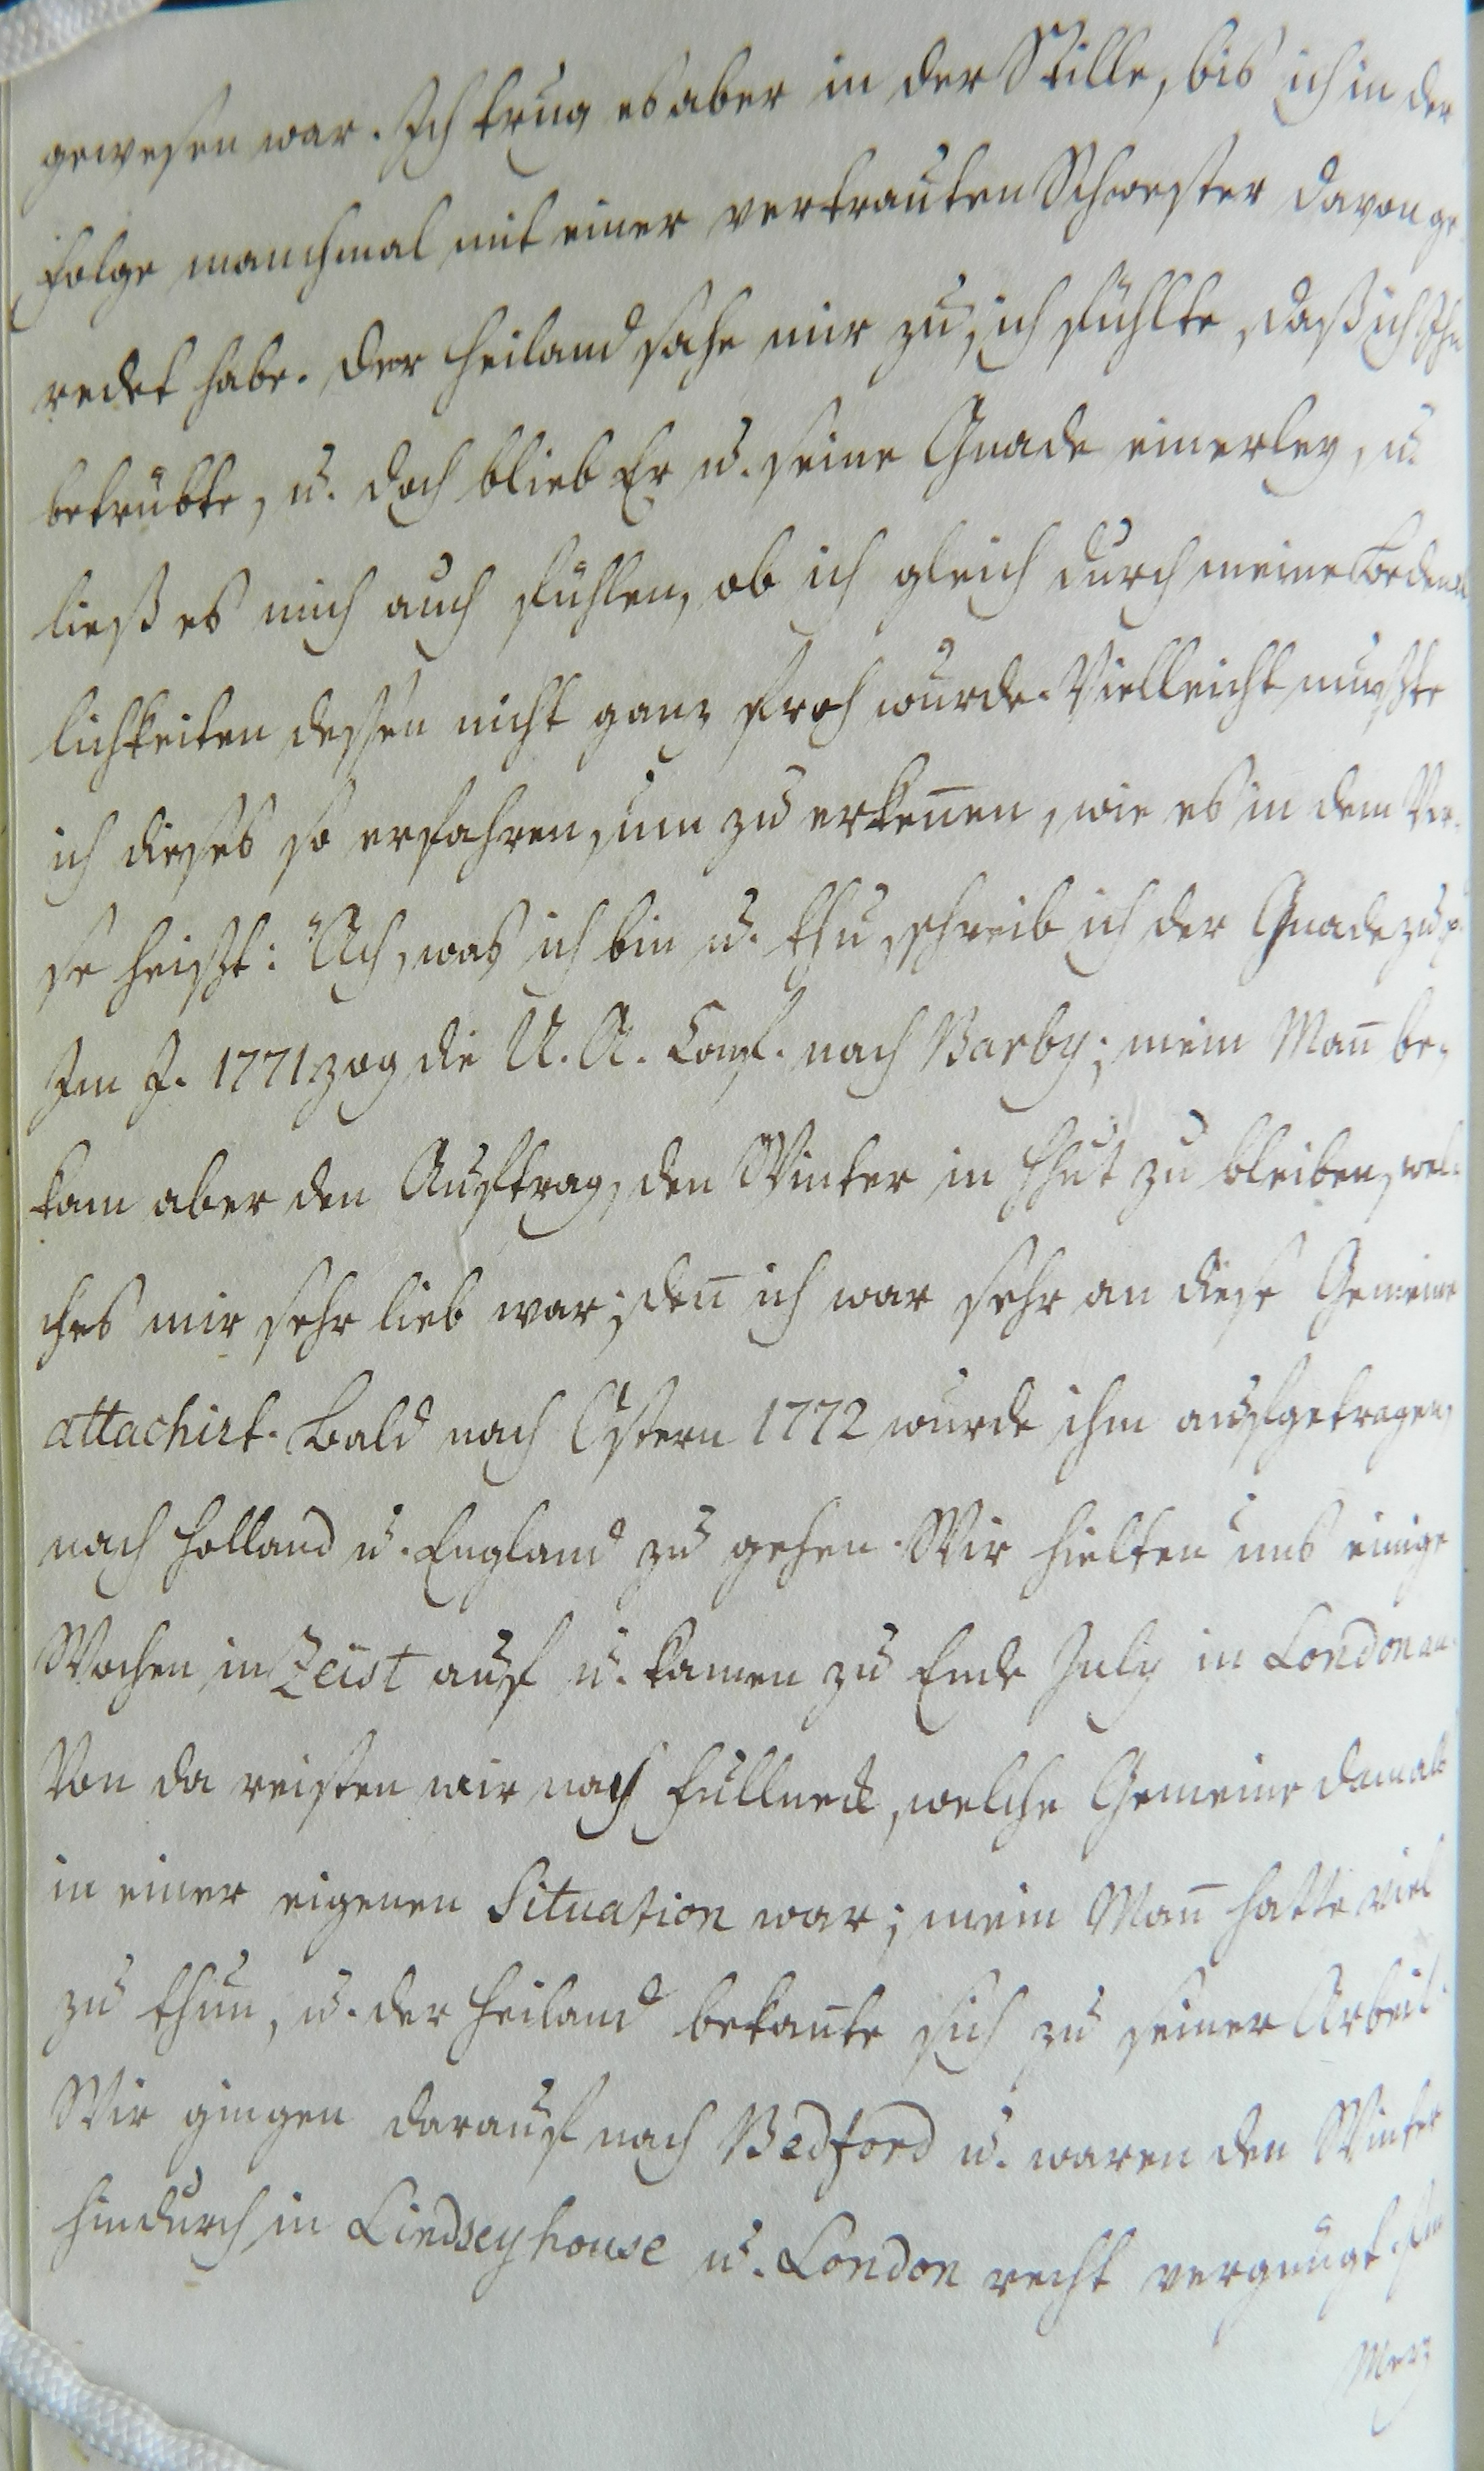 gewesen war. Ich trug es aber in der Stille, bis ich in der
Folge manchmal mit einer vertrauten Schwester davon ge-
redet habe. Der Heiland sahe mir zu, ich fühlte, daß ich Ihn
betrübte, u. doch blieb Er u. seine Gnade einerley, u.
ließ es mich auch fühlen, ob ich gleich durch meine Bedenk
lichkeiten dessen nicht ganz froh wurde. Vielleicht mußte
ich dieses so erfahren, um zu erken̄en, wie es in dem Ver-
se heißt: Ach, was ich bin u. thu, schreib ich der Gnade zu p.
Im J. 1771 zog die U. A. Conf. nach Barby; mein Man̄ be-
kam aber den Auftrag, den Winter in Hhut zu bleiben, wel-
ches mir sehr lieb war; den̄ ich war sehr an diese Gemeine
attachirt. Bald nach Ostern 1772 wurde ihm aufgetragen,
nach Holland u. England zu gehen. Wir hielten uns einige
Wochen in Zeist auf u. kamen zu Ende July in London an.
Von da reisten wir nach Fullneck, welche Gemeine damals
in einer eigenen Situation war; mein Man̄ hatte viel
zu thun, u. der Heiland bekan̄te sich zu seiner Arbeit.
Wir gingen darauf nach Bedford u. waren den Winter
hindurch in Lindseyhouse u. London recht vergnügt. Im
Merz